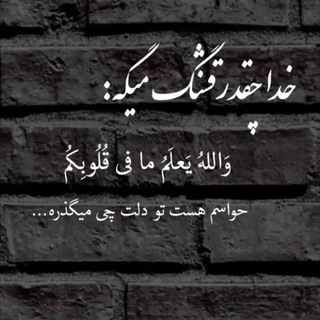 خدا چقدر قشنگ میگه:
وَاللهُ يَعلَمُ ما فی قُلُوبِکُم
حواسم هست تو دلت چی میگذره...